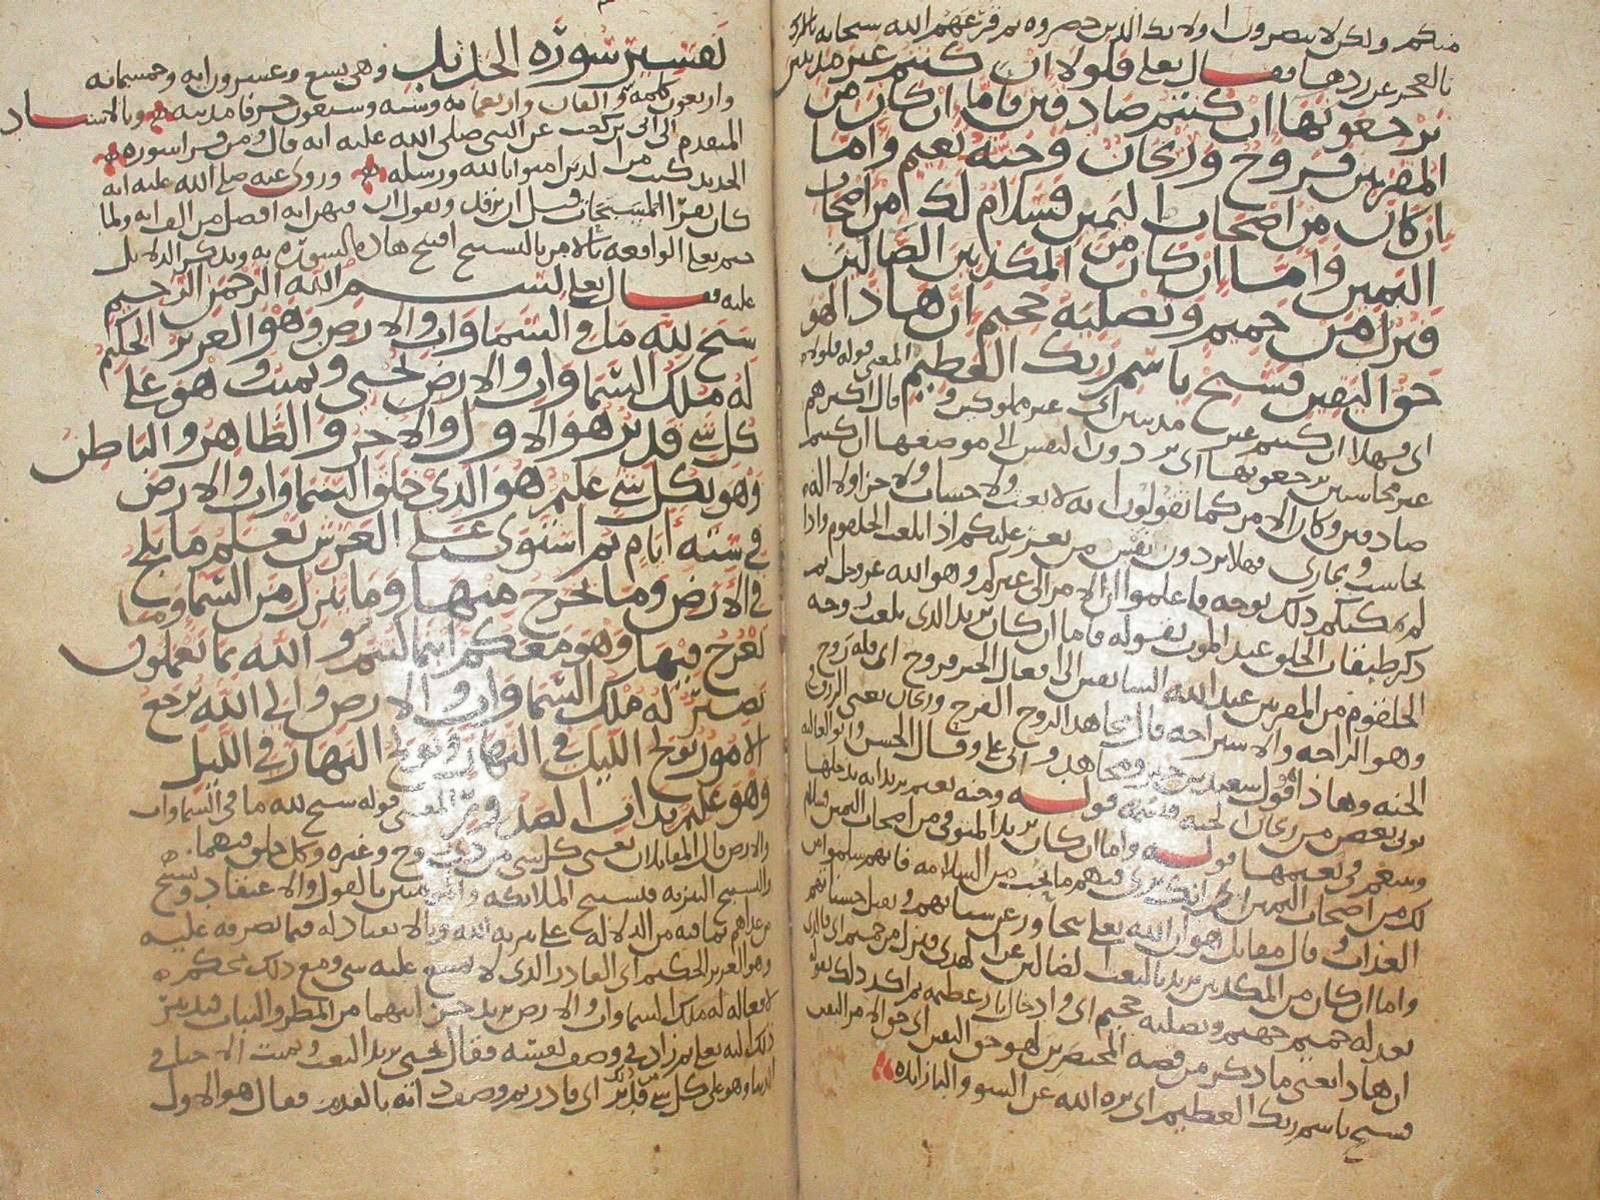 منكم ولكن لا تبصرون اولا بد الذين حضروه ثم قرعهم الله سبحانه
بالعجز عن ردها فقال تعلى فلولا ان كنتم غير مدينين
ترجعونها ان كنتم صادقين فاما ان كان من
المقربين فروح وريحان وجنة نعيم واما
ان كان من اصحاب اليمين فسلام لك من اصحاب
اليمين واما ان كان من المكذبين الضالين
فنزل من حميم وتصلية جحيم ان هاذا لهو
حق اليقين فسبح باسم ربك العظيم المعنى قوله فلولا
اي فهلا ان كنتم غير مدينين اي غير مملوكين وقال اكثرهم
غير محاسبين ترجعونها اي تردون النفس الى موضعها ان كنتم
صادقين وكان الامر كما تقولون انه لا بعث ولا حساب ولا جزا ولا اله
يحاسب ويجازي فهلا تردون نفس من يعز عليكم اذا بلغت الحلقوم واذا
لم يمكنكم ذلك بوجه فاعلموا ان الامر الى غيركم وهو الله عز وجل ثم
ذكر طبقات الخلق عند الموت بقوله فاما ان كان يريد الذي بلغت روحه
الحلقوم من المقربين عند الله السابقين الى افعال الخير فروح اي فله روح
وهو الراحة والاستراحة قال مجاهد الروح الفرح وريحان يعني الرزق في
الجنة وهاذا قول سعيد بن جبير ومجاهد وقال الحسن وابو العالية
يوتى بغصن من ريحان الجنة فيشمه قوله وجنة نعيم يريد انه يدخلها
ويتنعم في نعيمها قوله واما ان كان يريد المتوفى من اصحاب اليمين فسلام
لك من اصحاب اليمين اي انك ترى فيهم ما تحب من السلامة فانهم سلموا من
العذاب وقال مقاتل هو ان الله تعلى يتجاوز عن سياتهم ويقبل حسناتهم
واما ان كان من المكذبين يريد بالبعث الضالين عن الهدى فنزل من حميم اي فالذي
يعد له حميم جهنم وتصلية جحيم اي وادخال نار عظيمة ثم اكد ذلك بقوله
ان هاذا يعني ما ذكر من قصة المحتضرين لهو حق اليقين اي حق الامر اليقين
فسبح باسم ربك العظيم اي نزه الله عن السو
تفسير سورة الحديد وهي تسع وعشرون اية وخمسمائة
واربعون كلمة والفان واربعمائة وستة وسبعون حرفا مدنية وبالاسناد
المتقدم الى ابي بن كعب عن النبي صلى الله عليه انه قال ومن قرا سورة
الحديد كتب من الذين امنوا بالله ورسله وروي عنه صلى الله عليه انه
كان يقرا المسبحات قبل ان يرقد ويقول ان فيهن اية افضل من الف اية ولما
ختم تعلى الواقعة بالامر بالتسبيح افتتح هاذه السورة به وبذكر الدلايل
عليه فقال تعلى بسم الله الرحمن الرحيم
سبح لله ما في السماوات والارض وهو العزيز الحكيم
له ملك السماوات والارض يحيي ويميت وهو على
كل شي قدير هو الاول والاخر والظاهر والباطن
وهو بكل شي عليم هو الذي خلق السماوات والارض
في ستة ايام ثم استوى على العرش يعلم ما يلج
في الارض وما يخرج منها وما ينزل من السما وما
يعرج فيها وهو معكم اينما كنتم والله بما تعملون
بصير له ملك السماوات والارض والى الله ترجع
الامور يولج الليل في النهار ويولج النهار في الليل
وهو عليم بذات الصدور المعنى قوله سبح لله ما في السماوات
والارض قال المقاتلان يعني كل شي من ذي روح وغيره وكل خلق فيهما
والتسبيح التنزيه فتسبيح الملائكة والمومنين بالقول والاعتقاد وتسبيح
من عداهم بما فيه من الدلالة على تنزيه الله وبالانقياد له فيما يصرفه عليه
وهو العزيز الحكيم اي القادر الذي لا يمتنع عليه شي ومع ذلك محكم
لافعاله له ملك السماوات والارض يريد خزائنهما من المطر والنبات فتدبير
ذلك اليه تعلى ثم زاد في وصف نفسه فقال يحيي يريد البعث ويميت الاحيا في
الدنيا وهو على كل شي قدير اي قادر ثم وصف ذاته بالقدم فقال هو الاول